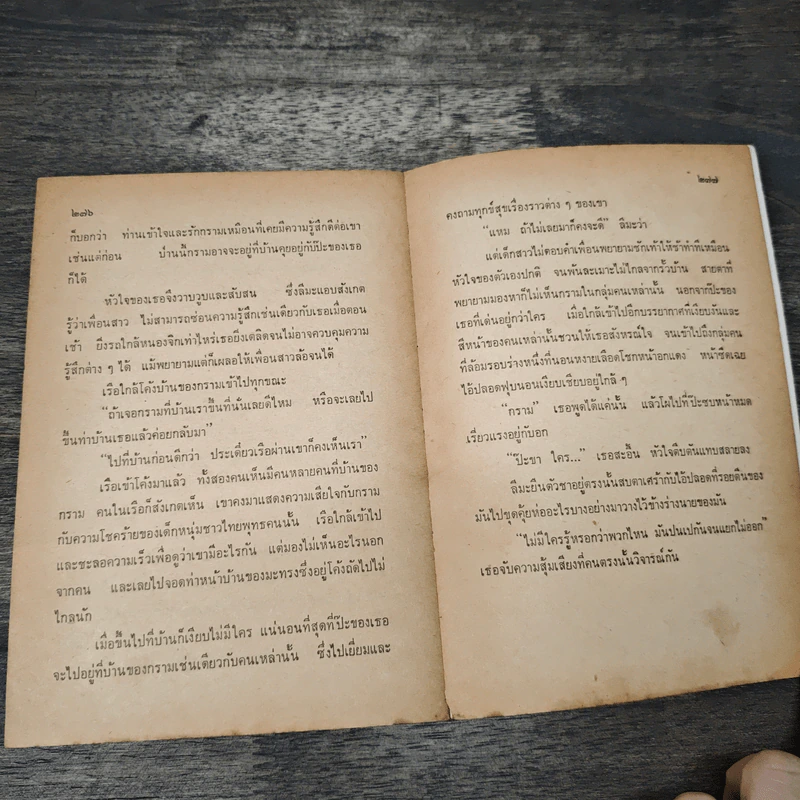 ๒๗๖
ก็บอกว่า ท่านเข้าใจและรักกรามเหมือนที่เคยมีความรู้สึกดีต่อเขา
เช่นแต่ก่อน ป่านนี้กรามอาจจะอยู่ที่บ้านคุยอยู่กับป๊ะของเธอ
ก็ได้
หัวใจของเธอจึงวาบวูบและสับสน ซึ่งลีมะแอบสังเกต
รู้ว่าเพื่อนสาว ไม่สามารถซ่อนความรู้สึกเช่นเดียวกับเธอเมื่อตอน
เช้า ยิ่งรถใกล้หนองจิกเท่าไหร่เธอยิ่งเตลิดจนไม่อาจควบคุมความ
รู้สึกต่าง ๆ ได้ แม้พยายามแต่ก็เผลอให้เพื่อนสาวล้อจนได้
เรือใกล้โค้งบ้านของกรามเข้าไปทุกขณะ
“ถ้าเจอกรามที่บ้านเราขึ้นที่นั่นเลยดีไหม หรือจะเลยไป
ขึ้นท่าบ้านเธอแล้วค่อยกลับมา”
“ไปที่บ้านก่อนดีกว่า ประเดี๋ยวเรือผ่านเขาก็คงเห็นเรา”
เรือเข้าโค้งมาแล้ว ทั้งสองคนเห็นมีคนหลายคนที่บ้านของ
กราม คนในเรือก็สังเกตเห็น เขาคงมาแสดงความเสียใจกับกราม
กับความโชคร้ายของเด็กหนุ่มชาวไทยพุทธคนนั้น เรือใกล้เข้าไป
และชะลอความเร็วเพื่อดูว่าเขามีอะไรกัน แต่มองไม่เห็นอะไรนอก
จากคน และเลยไปจอดท่าหน้าบ้านของมะทรงซึ่งอยู่โค้งถัดไปไม่
ไกลนัก
เมื่อขึ้นไปที่บ้านก็เงียบไม่มีใคร แน่นอนที่สุดที่ป๊ะของเธอ
จะไปอยู่ที่บ้านของกรามเช่นเดียวกับคนเหล่านั้น ซึ่งไปเยี่ยมและ
๒๗๗
คงถามทุกข์สุขเรื่องราวต่าง ๆ ของเขา
“แหม ถ้าไม่เลยมาก็คงจะดี” ลีมะว่า
แต่เด็กสาวไม่ตอบคำเพื่อนพยายามชักเท้าให้ช้าทำทีเหมือน
หัวใจของตัวเองปกติ จนพ้นละเมาะไม่ไกลจากรั้วบ้าน สายตาที่
พยายามมองหาก็ไม่เห็นกรามในกลุ่มคนเหล่านั้น นอกจากป๊ะของ
เธอที่เด่นอยู่กว่าใคร เมื่อใกล้เข้าไปอีกบรรยากาศที่เงียบงันและ
สีหน้าของคนเหล่านั้นชวนให้เธอสังหรณ์ใจ จนเข้าไปถึงกลุ่มคน
ที่ล้อมรอบร่างหนึ่งที่นอนหงายเลือดโชกหน้าอกแดง หน้าซีดเฉย
ไอ้ปลอดฟุบนอนเงียบเชียบอยู่ใกล้ ๆ
“กราม” เธอพูดได้แค่นั้น แล้วโผไปที่ป๊ะซบหน้าหมด
เรี่ยวแรงอยู่กับอก
“ป๊ะขา ใคร...” เธอสะอื้น หัวใจตีบตันแทบสลายลง
ลีมะยืนตัวชาอยู่ตรงนั้นสบตาเศร้ากับไอ้ปลอดที่รอยตีนของ
มันไปขุดคุ้ยห่ออะไรบางอย่างมาวางไว้ข้างร่างนายของมัน
“ไม่มีใครรู้หรอกว่าพวกไหน มันปนเปกันจนแยกไม่ออก”
เธอจับความสุ้มเสียงที่คนตรงนั้นวิจารณ์กัน